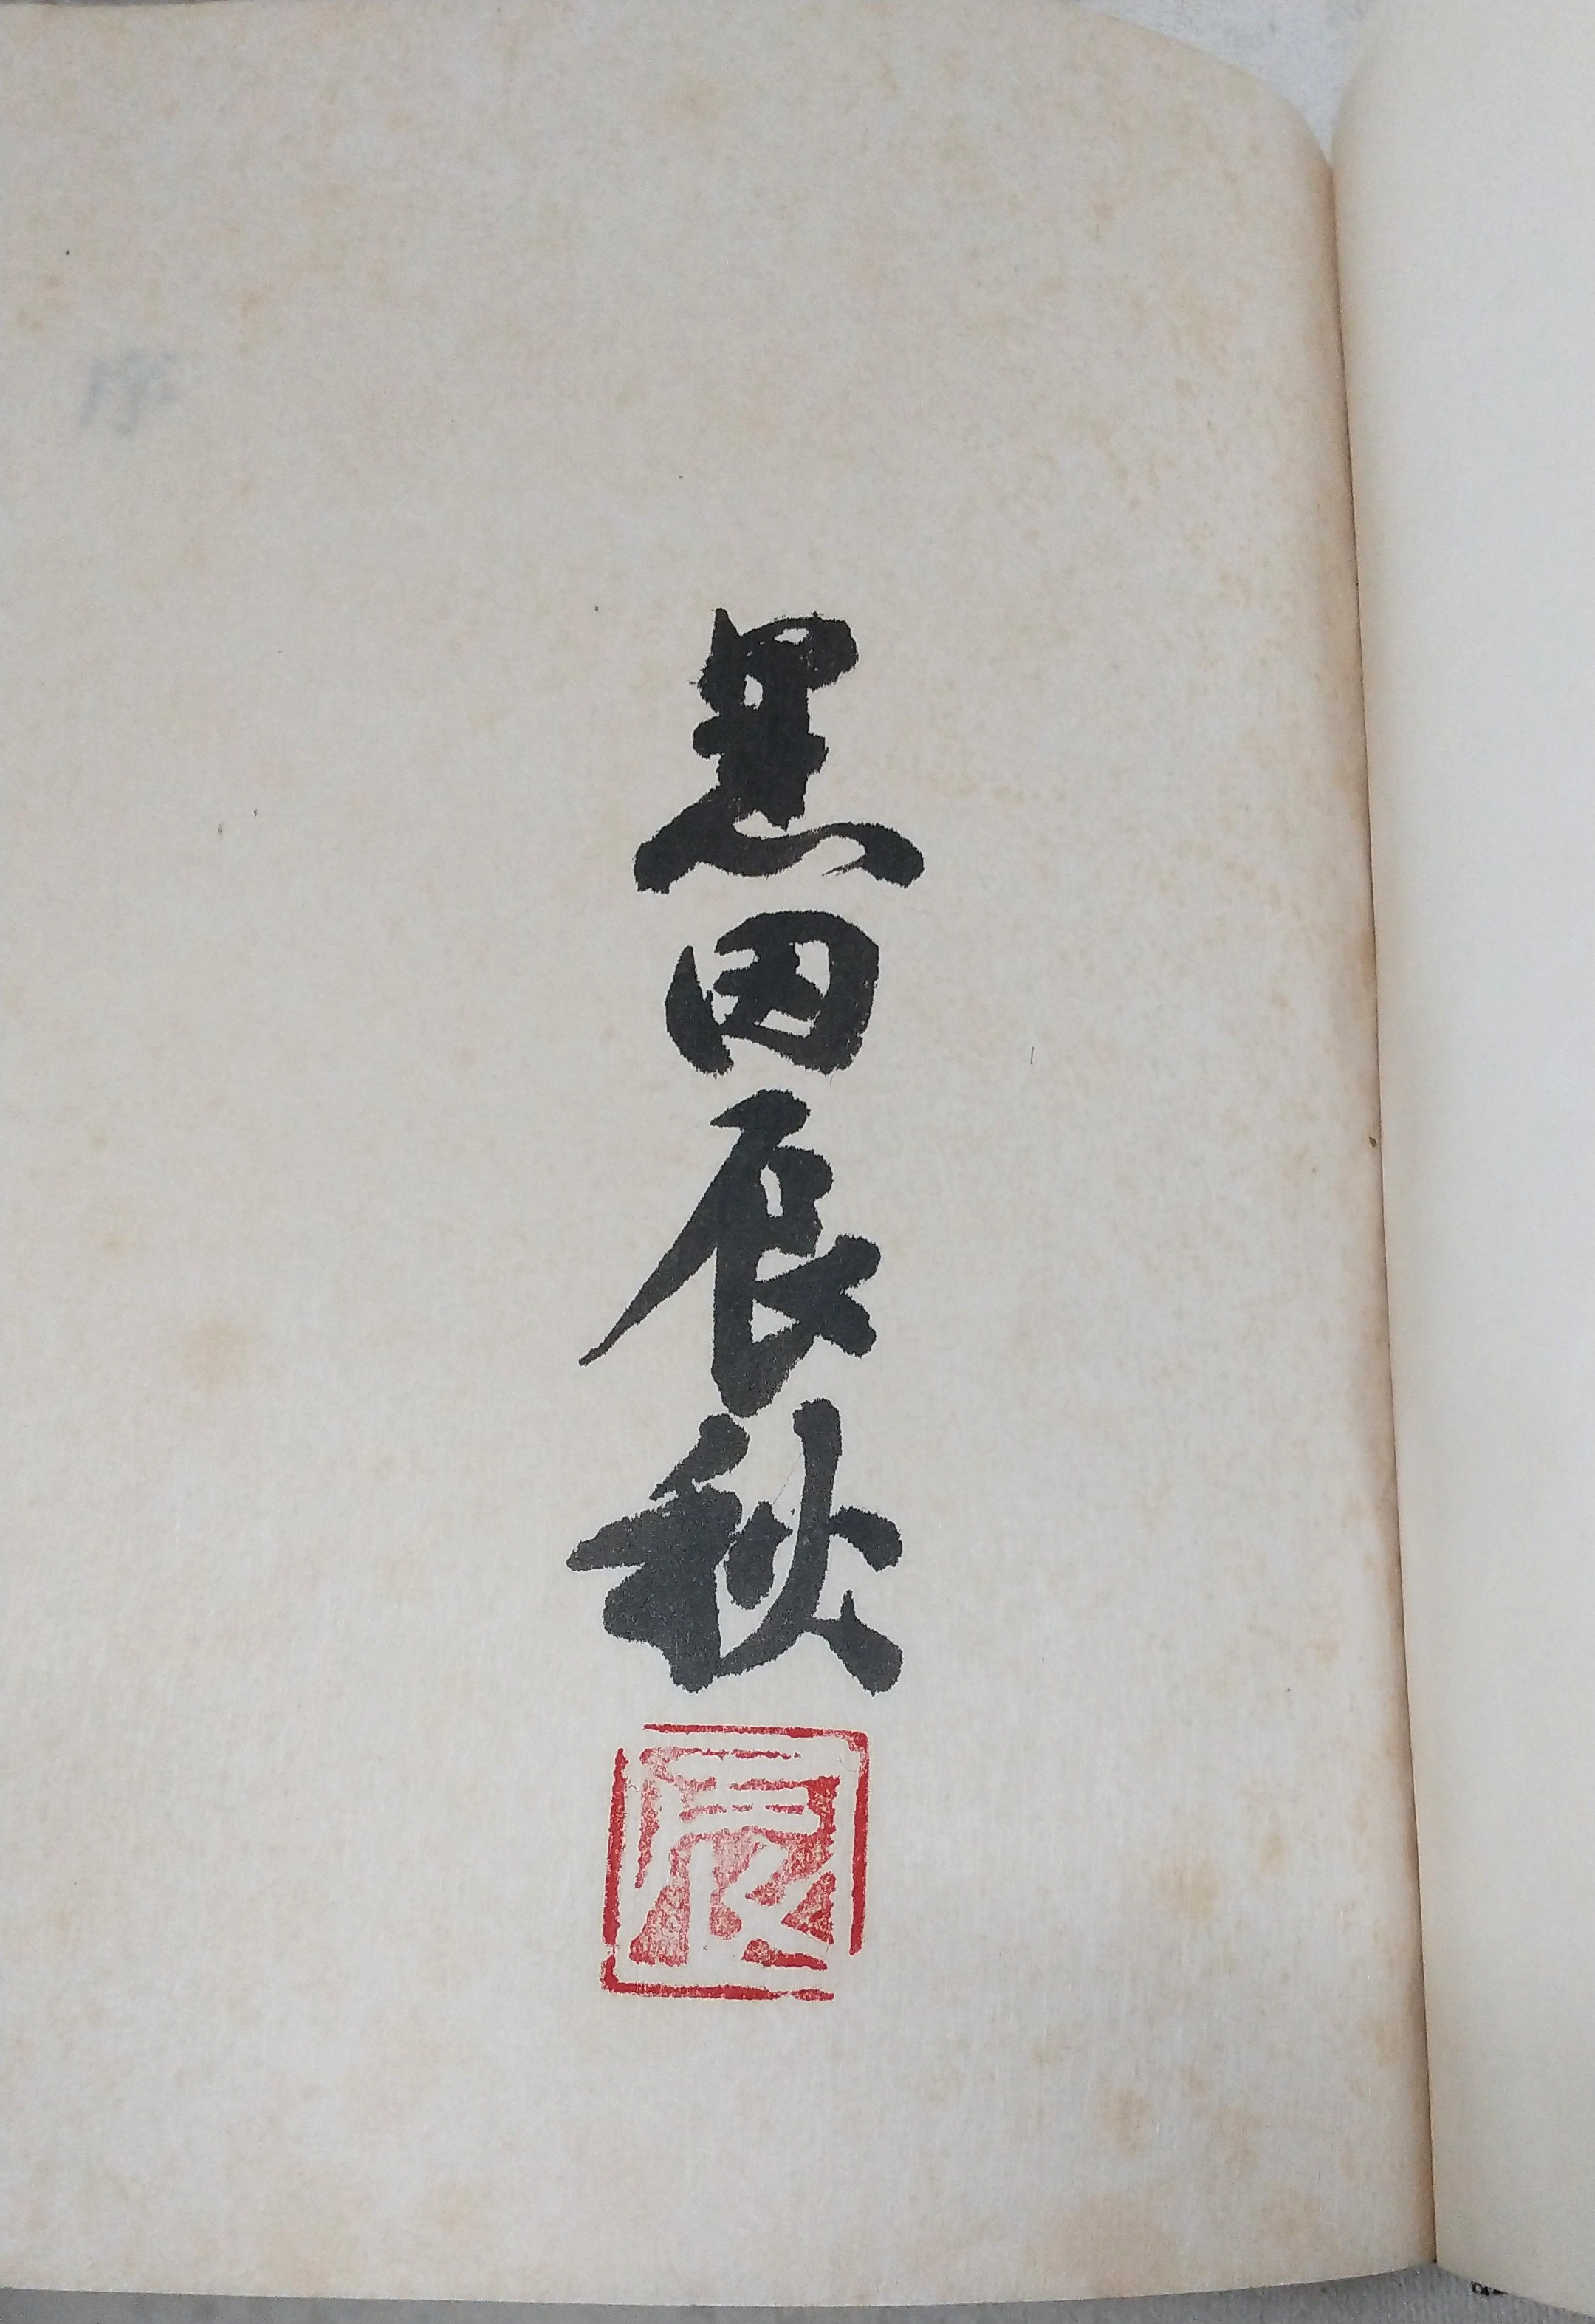 黒田辰秋
辰